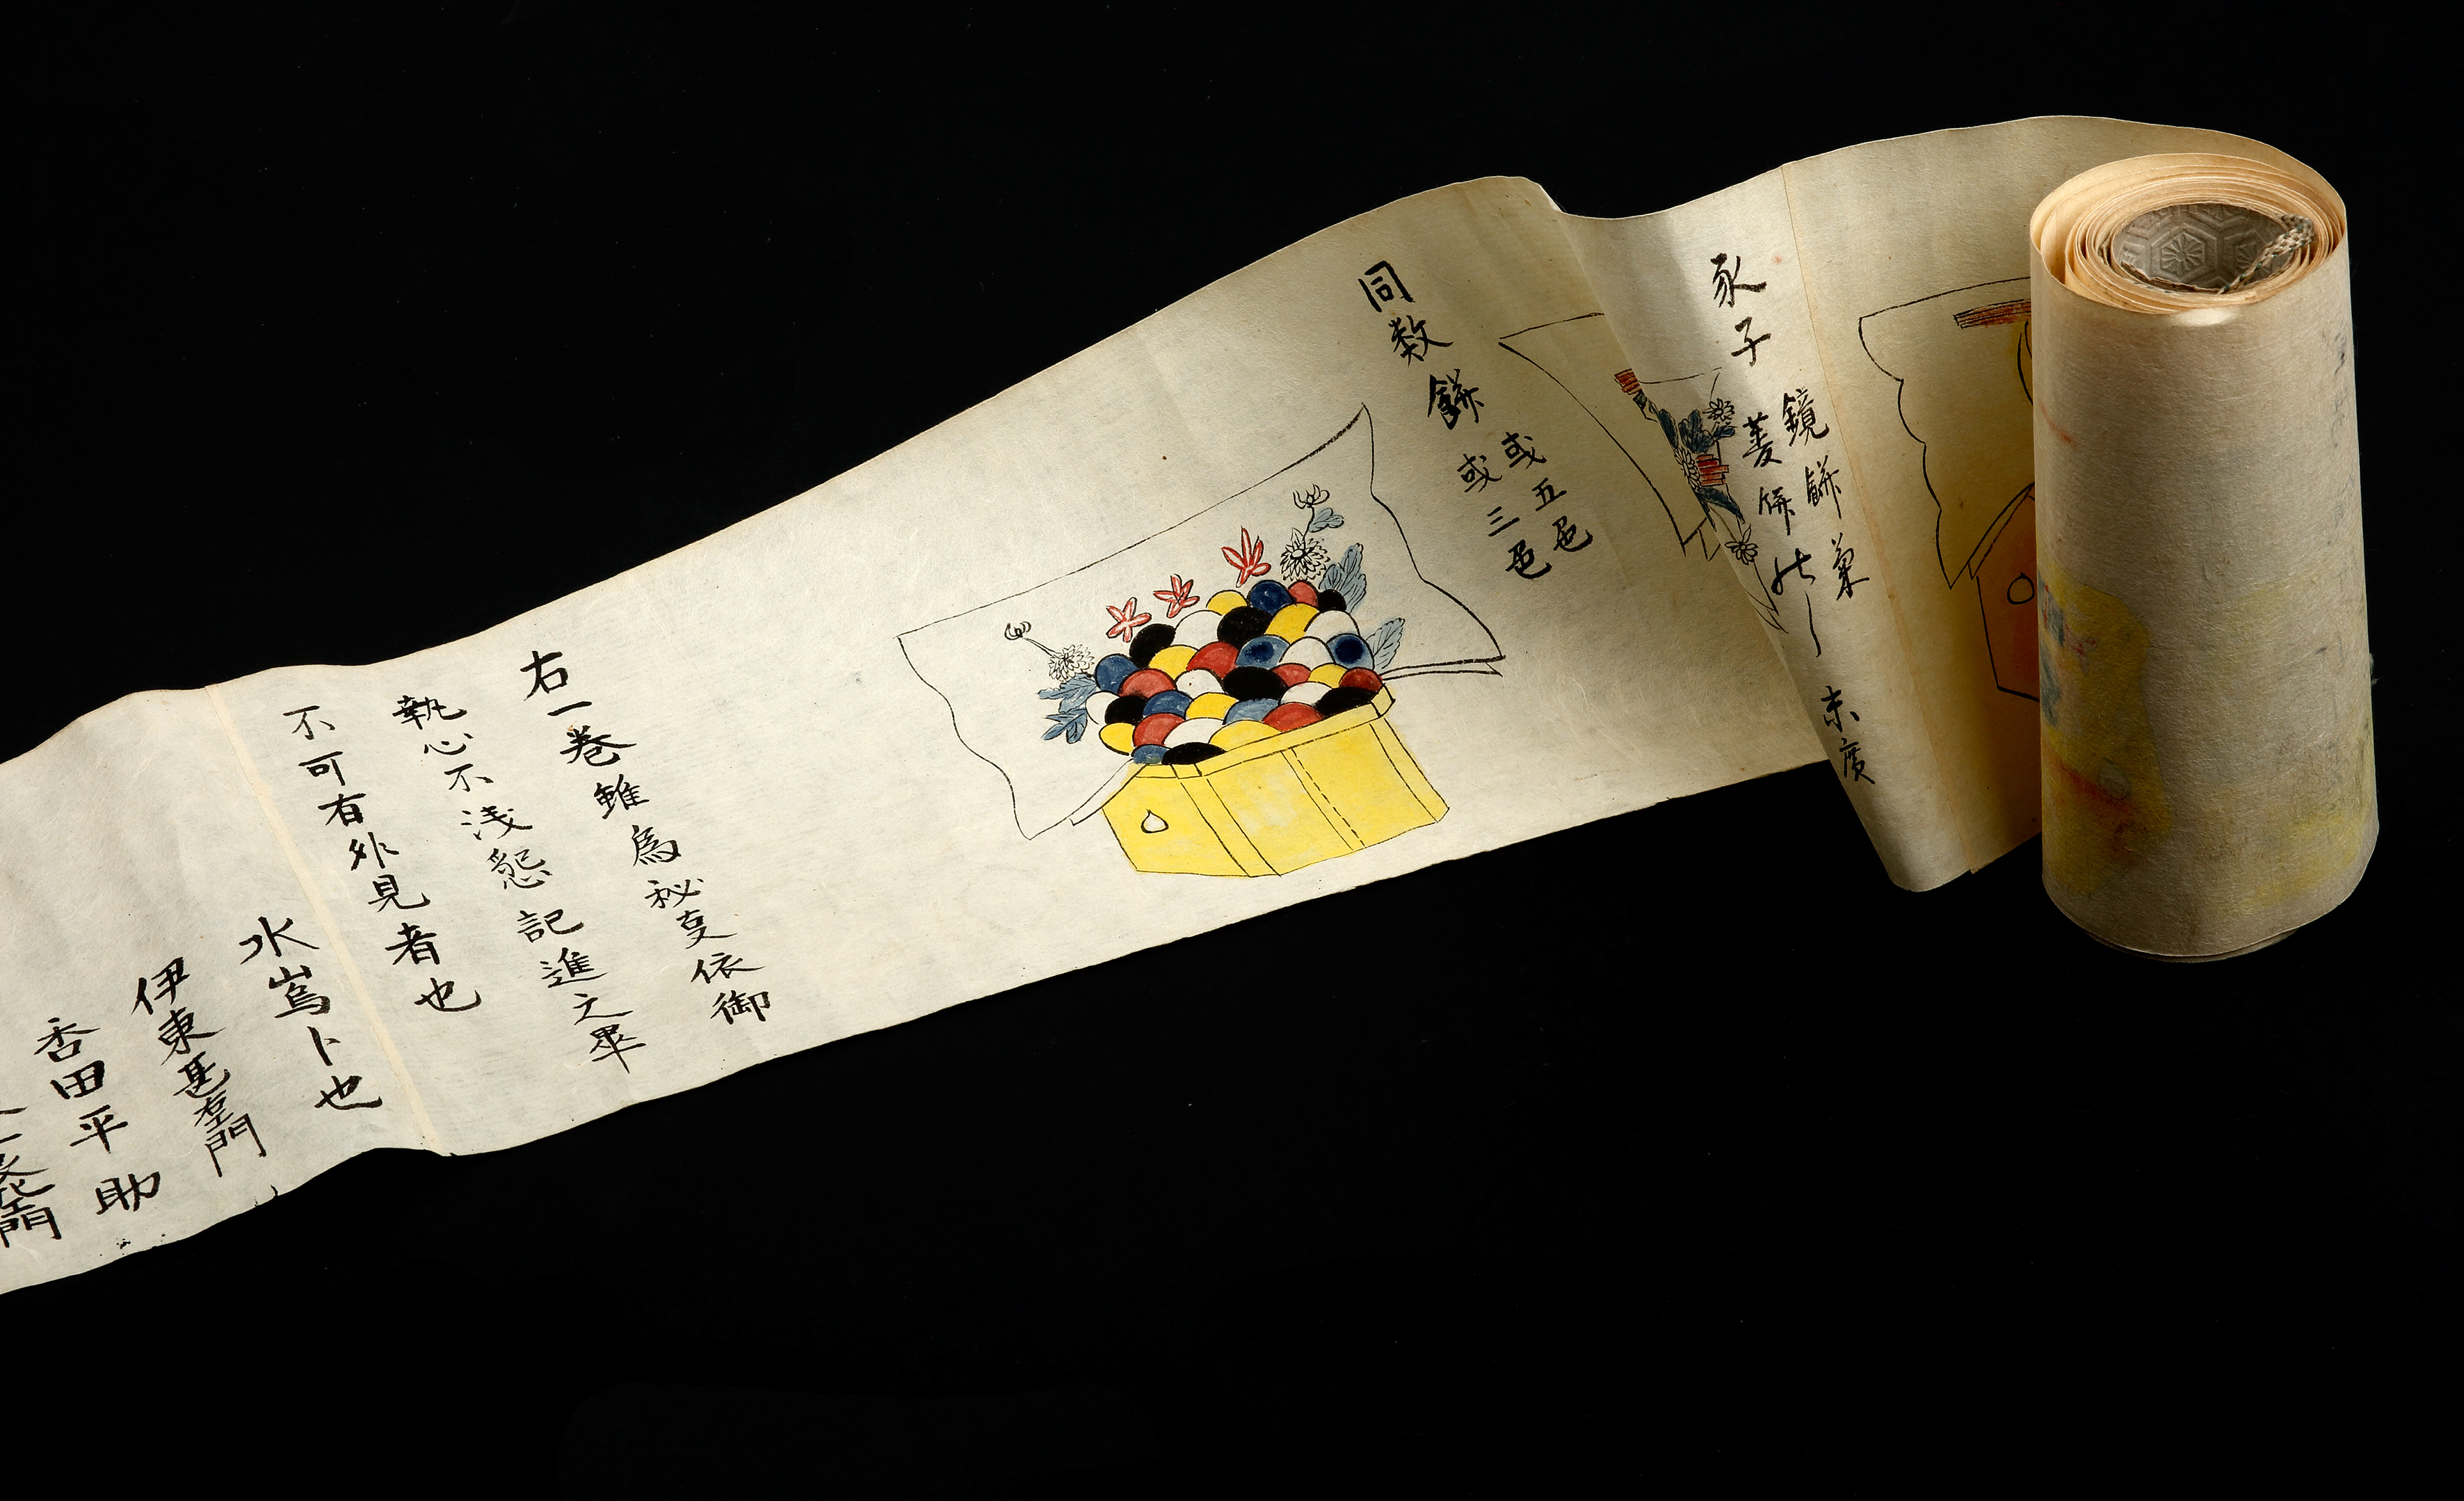 豕子
鏡餅菓
菱餅
末廣
同数餅
或五色
或三色
右一巻雖為秘叓依御
執心不浅懇記進之畢
不可有外見者也
水嶌卜也
伊東甚右衛門
香田平助